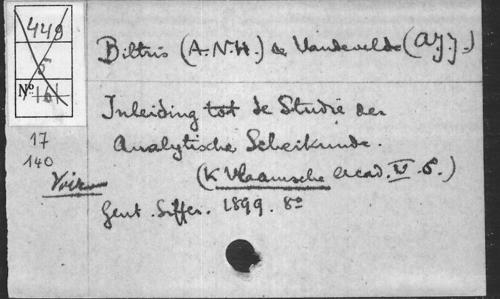 449
5
Nº 161
17
140
Voir
Biltris (A.N.H.) & Vandevelde (A.J.J.)
Inleiding tot de Studie der
Analytische Scheikunde.
(K Vlaamsche Acad. V. 5.)
Gent. Siffer. 1899. 8º